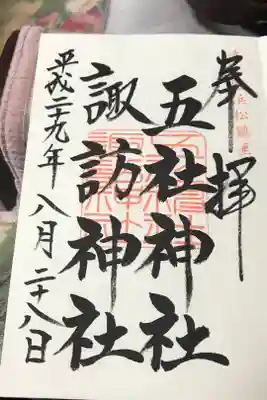 奉拝
五社神社
諏訪神社
平成二十九年八月二十八日